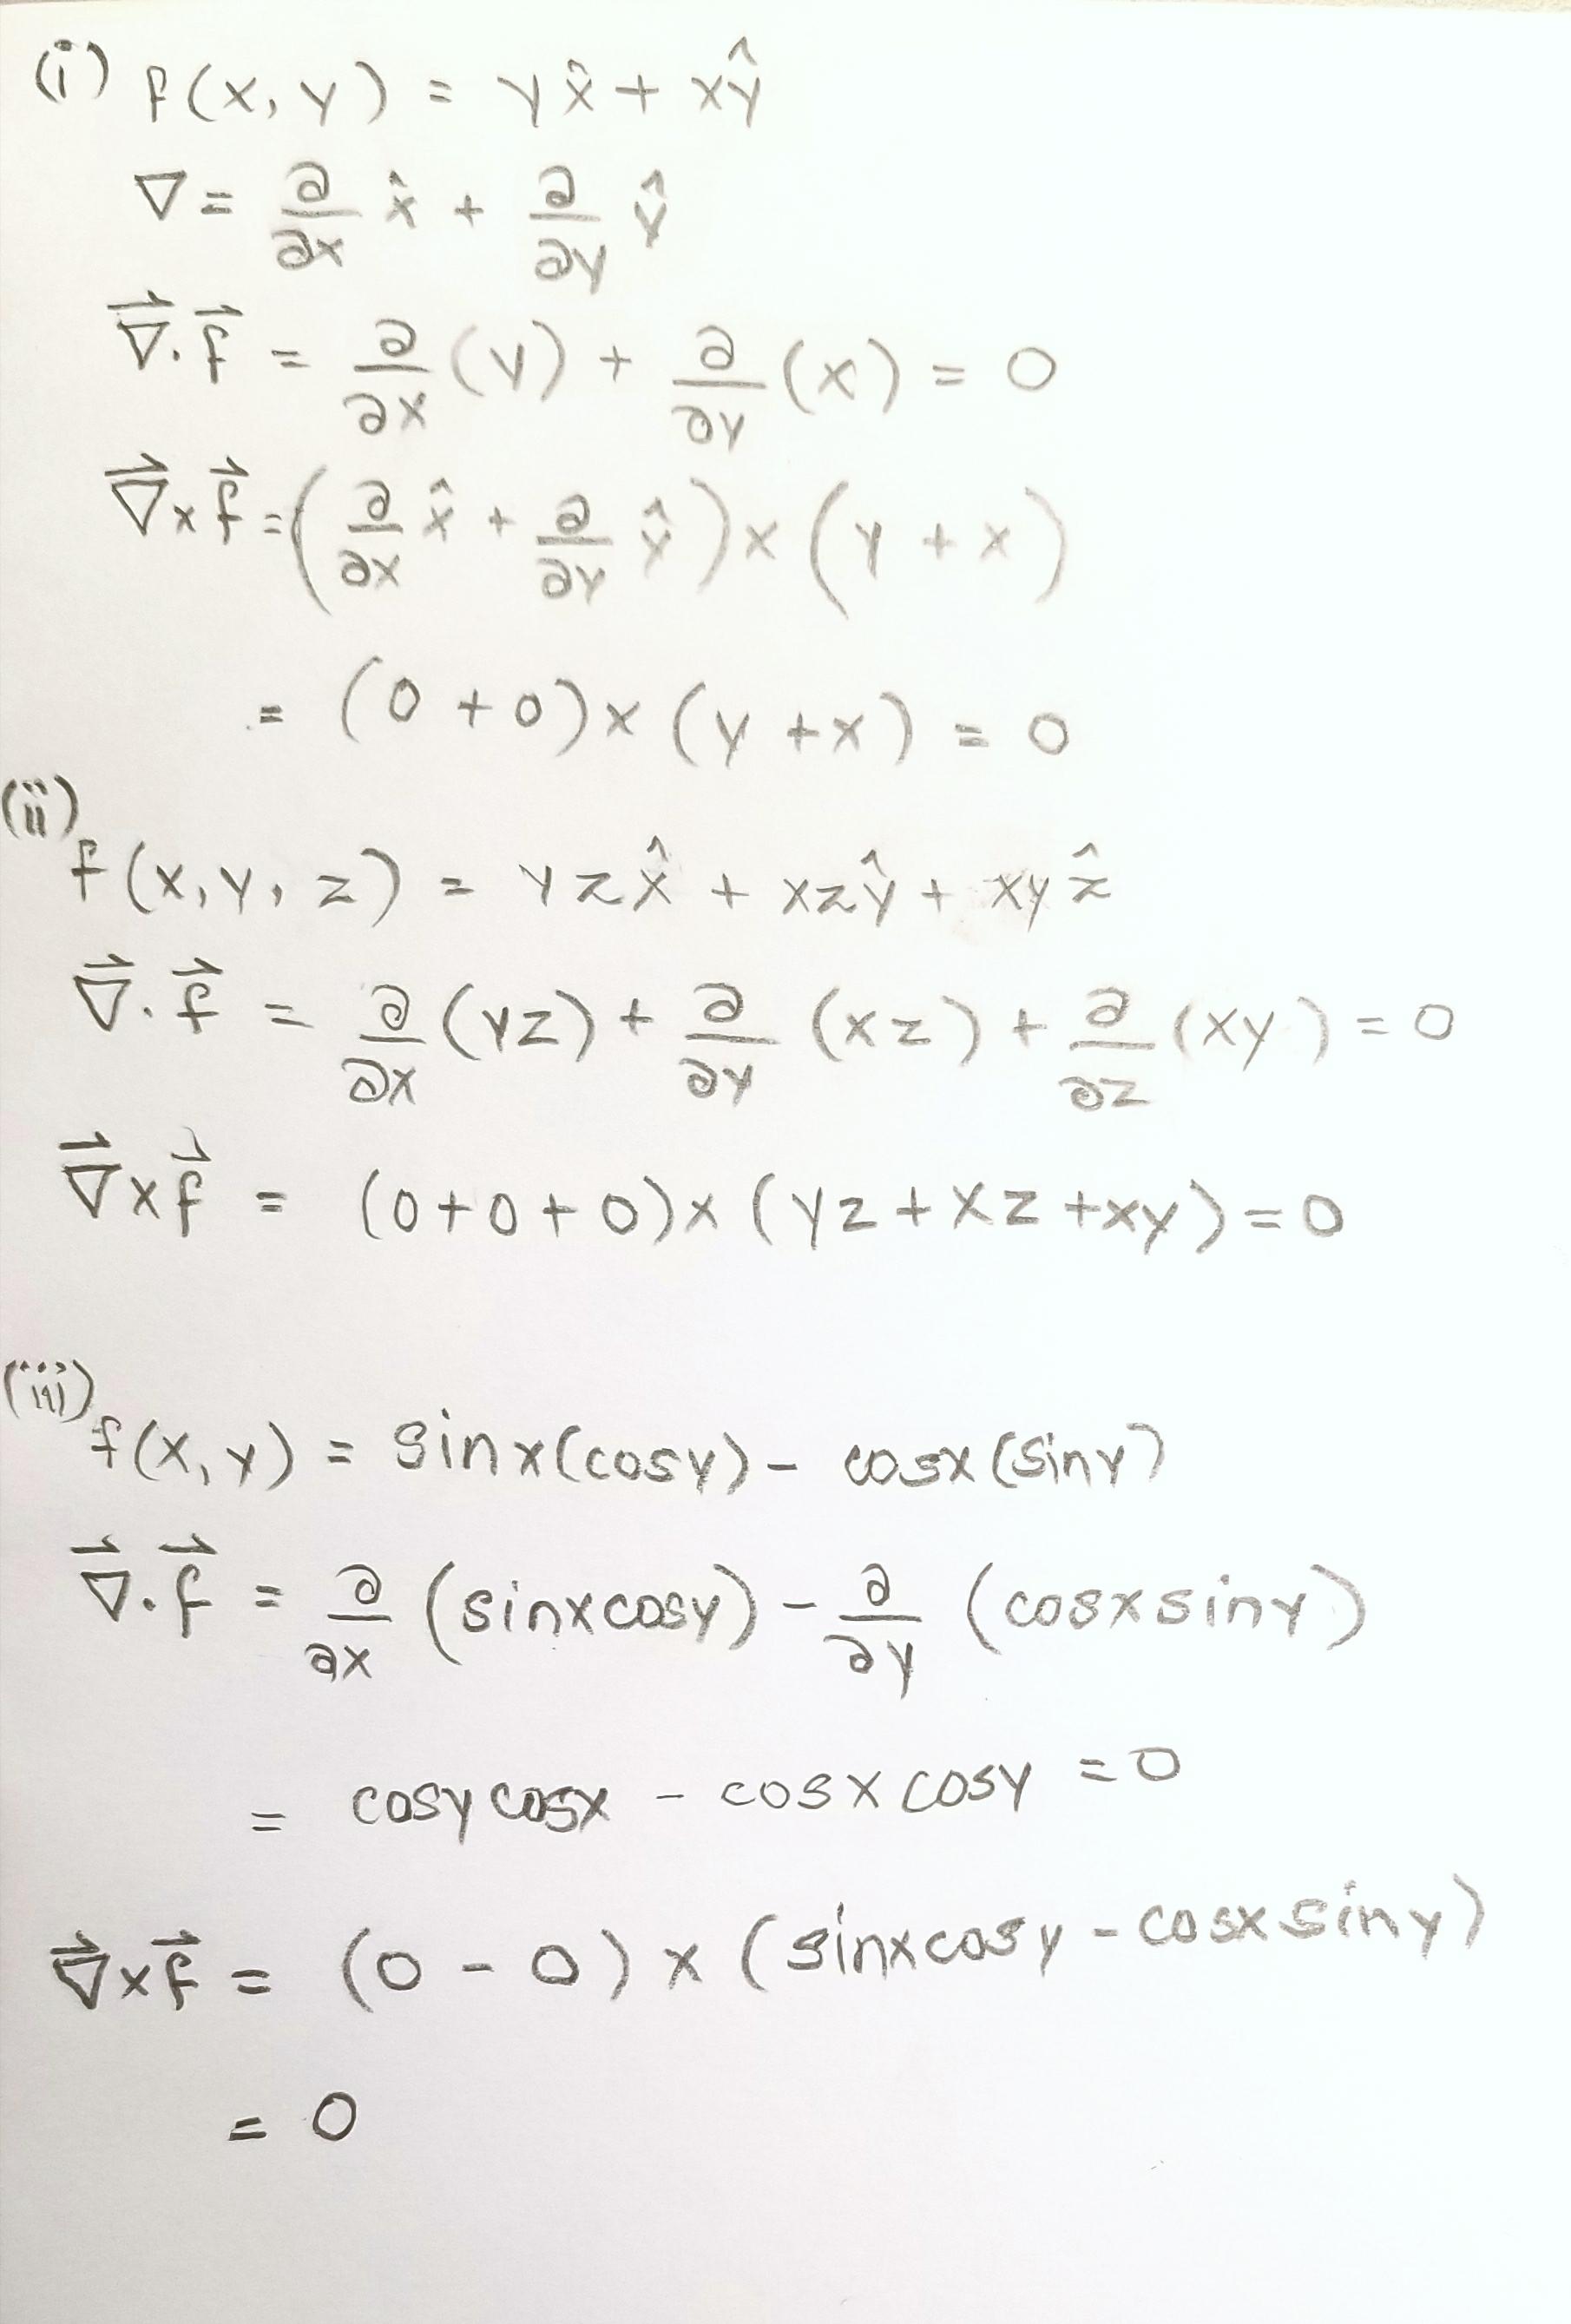 (i) f(x, y) = yx̂ + xŷ
∇ = ∂/∂x x̂ + ∂/∂y ŷ
∇⃗.f⃗ = ∂/∂x (y) + ∂/∂y (x) = 0
∇⃗×f⃗ = (∂/∂x x̂ + ∂/∂y ŷ) × (y + x)
= (0 + 0) × (y + x) = 0
(ii)
f(x, y, z) = yzx̂ + xzŷ + xyẑ
∇⃗.f⃗ = ∂/∂x (yz) + ∂/∂y (xz) + ∂/∂z (xy) = 0
∇⃗×f⃗ = (0+0+0)×(yz+xz+xy)=0
(iii)
f(x, y) = sinx(cosy) - cosx(siny)
∇⃗.f⃗ = ∂/∂x (sinxcosy) - ∂/∂y (cosxsiny)
= cosy cosx - cosx cosy = 0
∇⃗×f⃗ = (0 - 0) × (sinxcosy - cosxsiny)
= 0